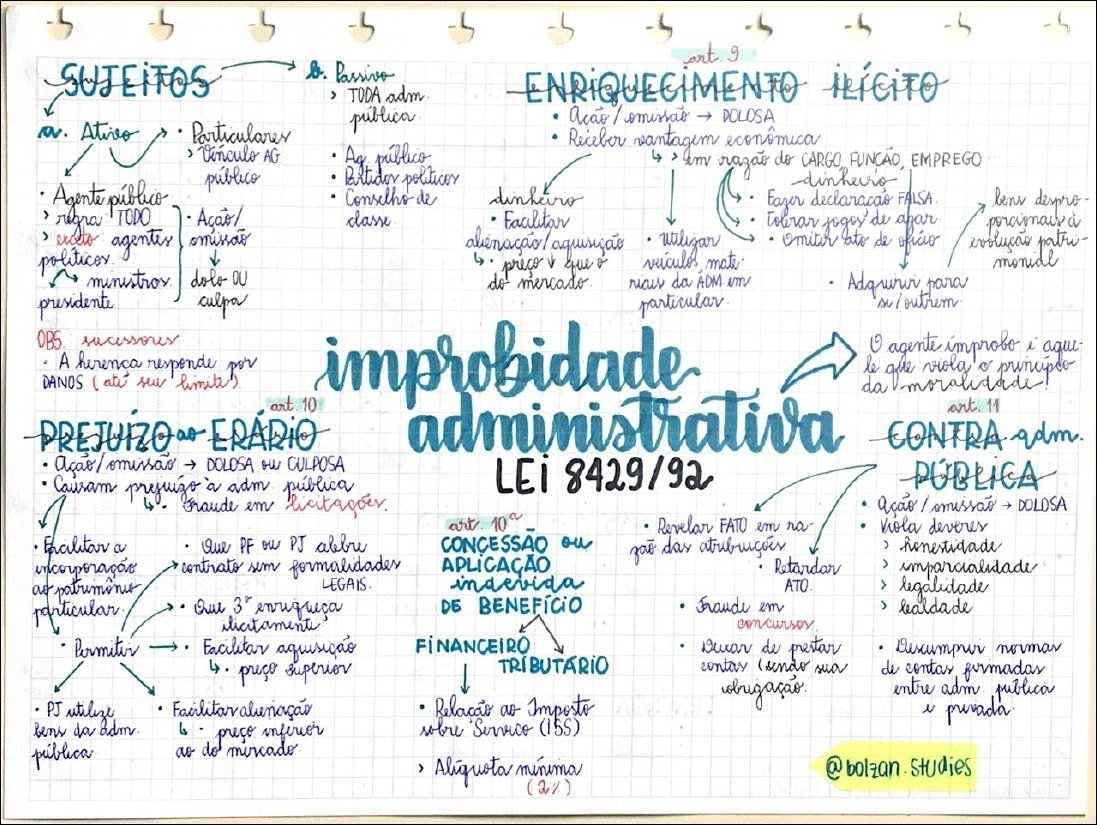 SUJEITOS
a. Ativo
• Particulares
> Vínculo AG
público
• Agente público
> regra TODO
> exceto agentes
políticos.
ministros
presidente
• Ação/
omissão
dolo OU
culpa
OBS: sucessores
• A herença responde por
DANOS (até seu limite)
b. Passivo
> TODA adm.
pública.
• Ag. público
• Partidos políticos
• Conselho de
classe.
art. 9
ENRIQUECIMENTO ILÍCITO
• Ação/omissão → DOLOSA
• Receber vantagem econômica
↳ > em razão do CARGO, FUNÇÃO, EMPREGO
dinheiro
• Facilitar
alienação/aquisição
↳ • preço ↓ que o
do mercado.
• Utilizar
veículos, mate-
riais da ADM em
particular.
dinheiro
• Fazer declaração FALSA.
• Tolerar jogos de azar
• Omitir ato de ofício
• Adquirir para
si/outrem.
bens despro-
porcionais à
evolução patri-
monial
improbidade
administrativa
LEI 8429/92
O agente ímprobo é aque-
le que viola o princípio
da moralidade!
art. 10
PREJUÍZO ao ERÁRIO
• Ação/omissão → DOLOSA ou CULPOSA
• Causam prejuízo à adm. pública
↳ • Fraude em licitações.
• Facilitar a
incorporação
ao patrimônio
particular.
• Permitir
• Que PF ou PJ
contrato sem formalidades
LEGAIS.
• Que 3º enriqueça
ilicitamente.
• Facilitar aquisição
↳ • preço superior
• PJ utilize
bens da adm.
pública
• Facilitar alienação
↳ • preço inferior
ao do mercado.
art. 10ª
CONCESSÃO ou
APLICAÇÃO
indevida
DE BENEFÍCIO
FINANCEIRO
TRIBUTÁRIO
• Relação ao Imposto
sobre Serviço (ISS)
> Alíquota mínima
(2%)
art. 11
CONTRA adm.
PÚBLICA
• Ação/omissão → DOLOSA
• Viola deveres
> honestidade
> imparcialidade
> legalidade
> lealdade
• Revelar FATO em ra-
zão das atribuições
• Retardar
ATO.
• Fraude em
concursos.
• Deixar de prestar
contas (sendo sua
obrigação.
• Descumprir normas
de contas firmadas
entre adm. pública
e privada.
@bolzan.studies